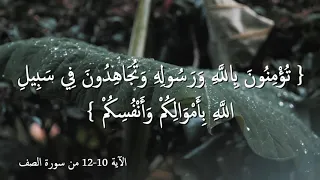 { تُؤْمِنُونَ بِاللَّهِ وَرَسُولِهِ وَتُجَاهِدُونَ فِي سَبِيلِ
اللَّهِ بِأَمْوَالِكُمْ وَأَنْفُسِكُمْ }
الآية 10-12 من سورة الصف